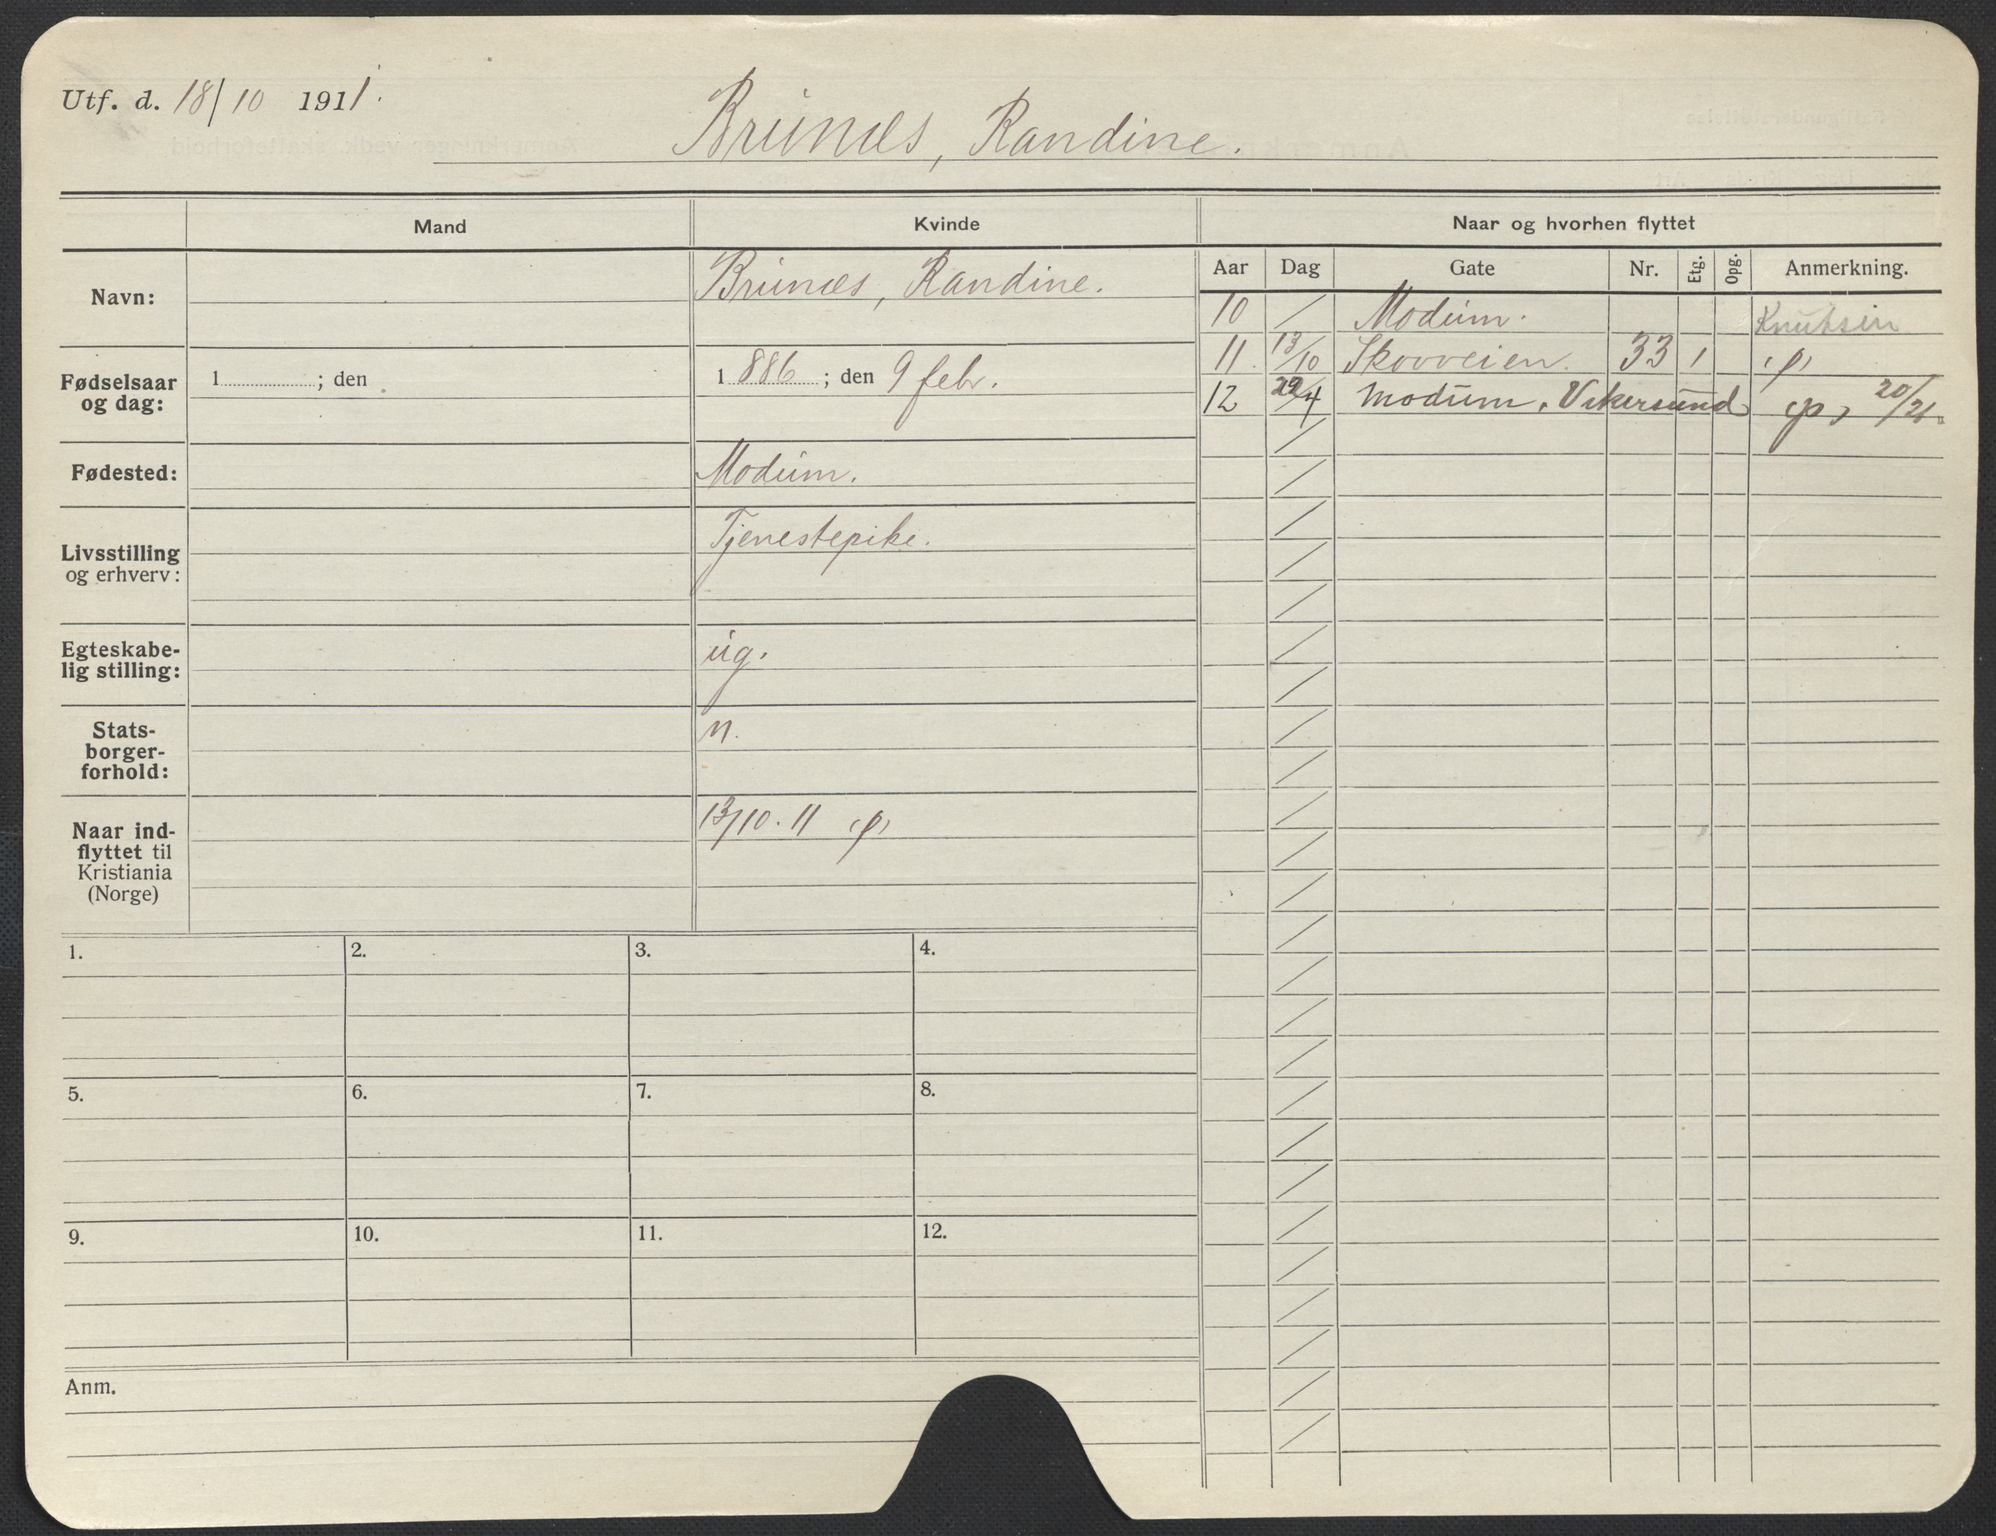 Utf. d. 18/10 1911.
Brunæs, Randine.
Mand
Kvinde
Naar og hvorhen flyttet
Aar Dag Gate Nr. Etg. Opg. Anmerkning.
Navn: Brunæs, Randine.
10 / Modum. Knutsen
11. 13/10 Skovveien. 33 1
12 / 4 Modum, Vikersund 20/21.
Fødselsaar og dag:
1 ; den
1 886 ; den 9 febr.
Fødested: Modum.
Livsstilling
og erhverv:
Tjenestepike.
Egteskabe-
lig stilling:
ug.
Stats-
borger-
forhold:
n.
Naar ind-
flyttet til
Kristiania
(Norge)
13/10. 11
1. 2. 3. 4.
5. 6. 7. 8.
9. 10. 11. 12.
Anm.